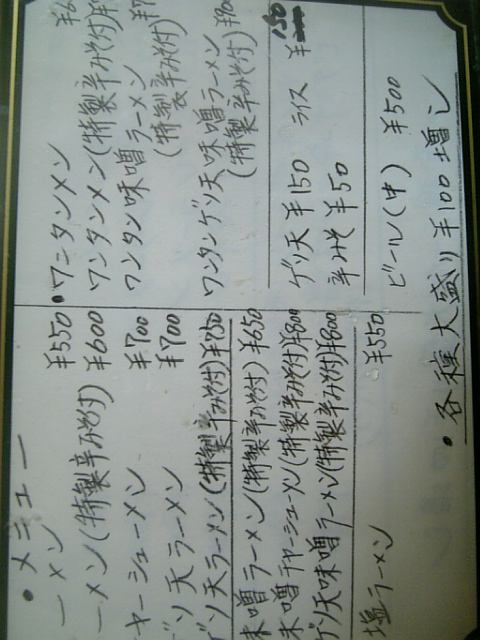 ・メニュー
ーメン ¥550
ーメン(特製辛みそ付) ¥600
ャーシューメン ¥700
ゲソ天ラーメン ¥700
ゲソ天ラーメン(特製辛みそ付)¥750
味噌ラーメン(特製辛みそ付)¥650
味噌チャーシューメン(特製辛みそ付)¥800
ゲソ天味噌ラーメン(特製辛みそ付)¥800
塩ラーメン ¥550
・ワンタンメン
ワンタンメン(特製辛みそ付)
ワンタン味噌ラーメン
(特製辛みそ付)
ワンタンゲソ天味噌ラーメン
(特製辛みそ付)
ゲソ天 ¥150 ライス ¥150
辛みそ ¥50
ビール(中) ¥500
・各種大盛り¥100増し